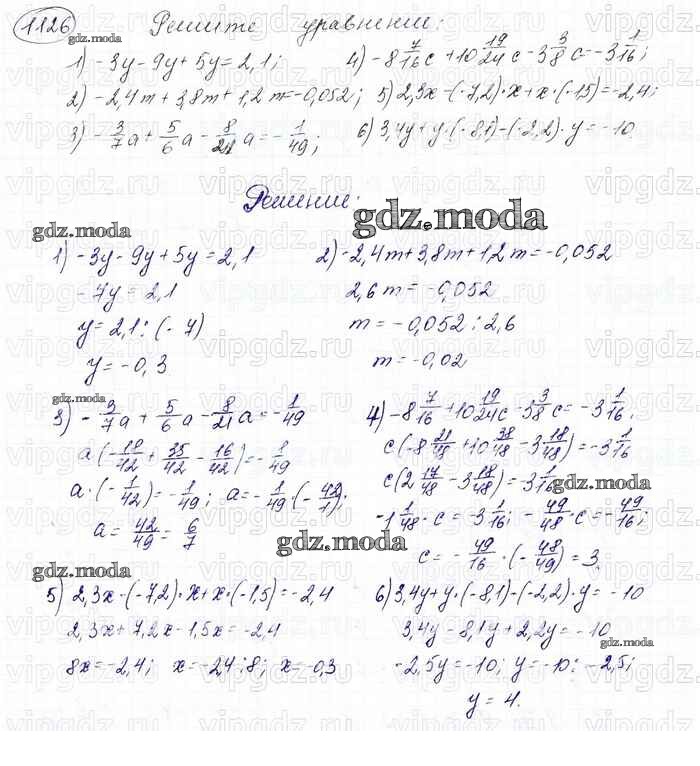 1126 Решите уравнение:
gdz.moda
1) -3y-9y+5y=2,1; 4) -8 7/16 c+10 19/24 c-3 3/8 c=-3 1/16;
2) -2,4m+3,8m+1,2m=-0,052; 5) 2,3x-(-7,2)·x+x·(-1,5)=-2,4;
3) -3/7 a+5/6 a-8/21 a=-1/49; 6) 3,4y+y·(-8,1)-(-2,2)·y=-10
Решение:
gdz.moda
gdz.moda
1) -3y-9y+5y=2,1 2) -2,4m+3,8m+1,2m=-0,052
-7y=2,1 2,6m=-0,052
y=2,1:(-7) m=-0,052:2,6
y=-0,3 m=-0,02
gdz.moda
3) -3/7 a+5/6 a-8/21 a=-1/49 4) -8 7/16 c+10 19/24 c-3 3/8 c=-3 1/16;
a(-18/42+35/42-16/42)=-1/49 c(-8 21/48+10 38/48-3 18/48)=-3 1/16
a·(-1/42)=-1/49; a=-1/49·(-42/1); c(2 17/48-3 18/48)=-3 1/16
gdz.moda
a=42/49=6/7 -1 1/48·c=-3 1/16; -49/48·c=-49/16;
gdz.moda
c=-49/16·(-48/49)=3.
gdz.moda
5) 2,3x-(-7,2)·x+x·(-1,5)=-2,4 6) 3,4y+y·(-8,1)-(-2,2)·y=-10
2,3x+7,2x-1,5x=-2,4 3,4y-8,1y+2,2y=-10
gdz.moda
8x=-2,4; x=-2,4:8; x=-0,3 -2,5y=-10; y=-10:-2,5;
y=4.
vipgdz.ru